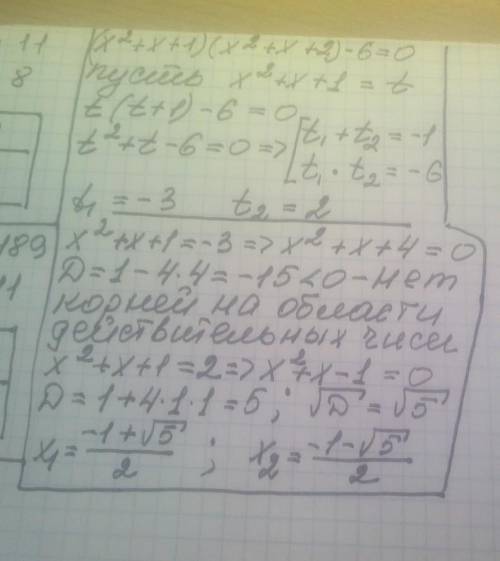 11
8
(x²+x+1)(x²+x+2)-6=0
пусть x²+x+1 = t
t(t+1)-6=0
t²+t-6=0 => [t₁+t₂=-1
t₁·t₂=-6
t₁=-3 t₂=2
189
11
x²+x+1=-3=>x²+x+4=0
D=1-4·4=-15<0-нет
корней на области
действительных чисел
x²+x+1=2=>x²+x-1=0
D=1+4·1·1=5; √D=√5
x₁=(-1+√5)/2; x₂=(-1-√5)/2